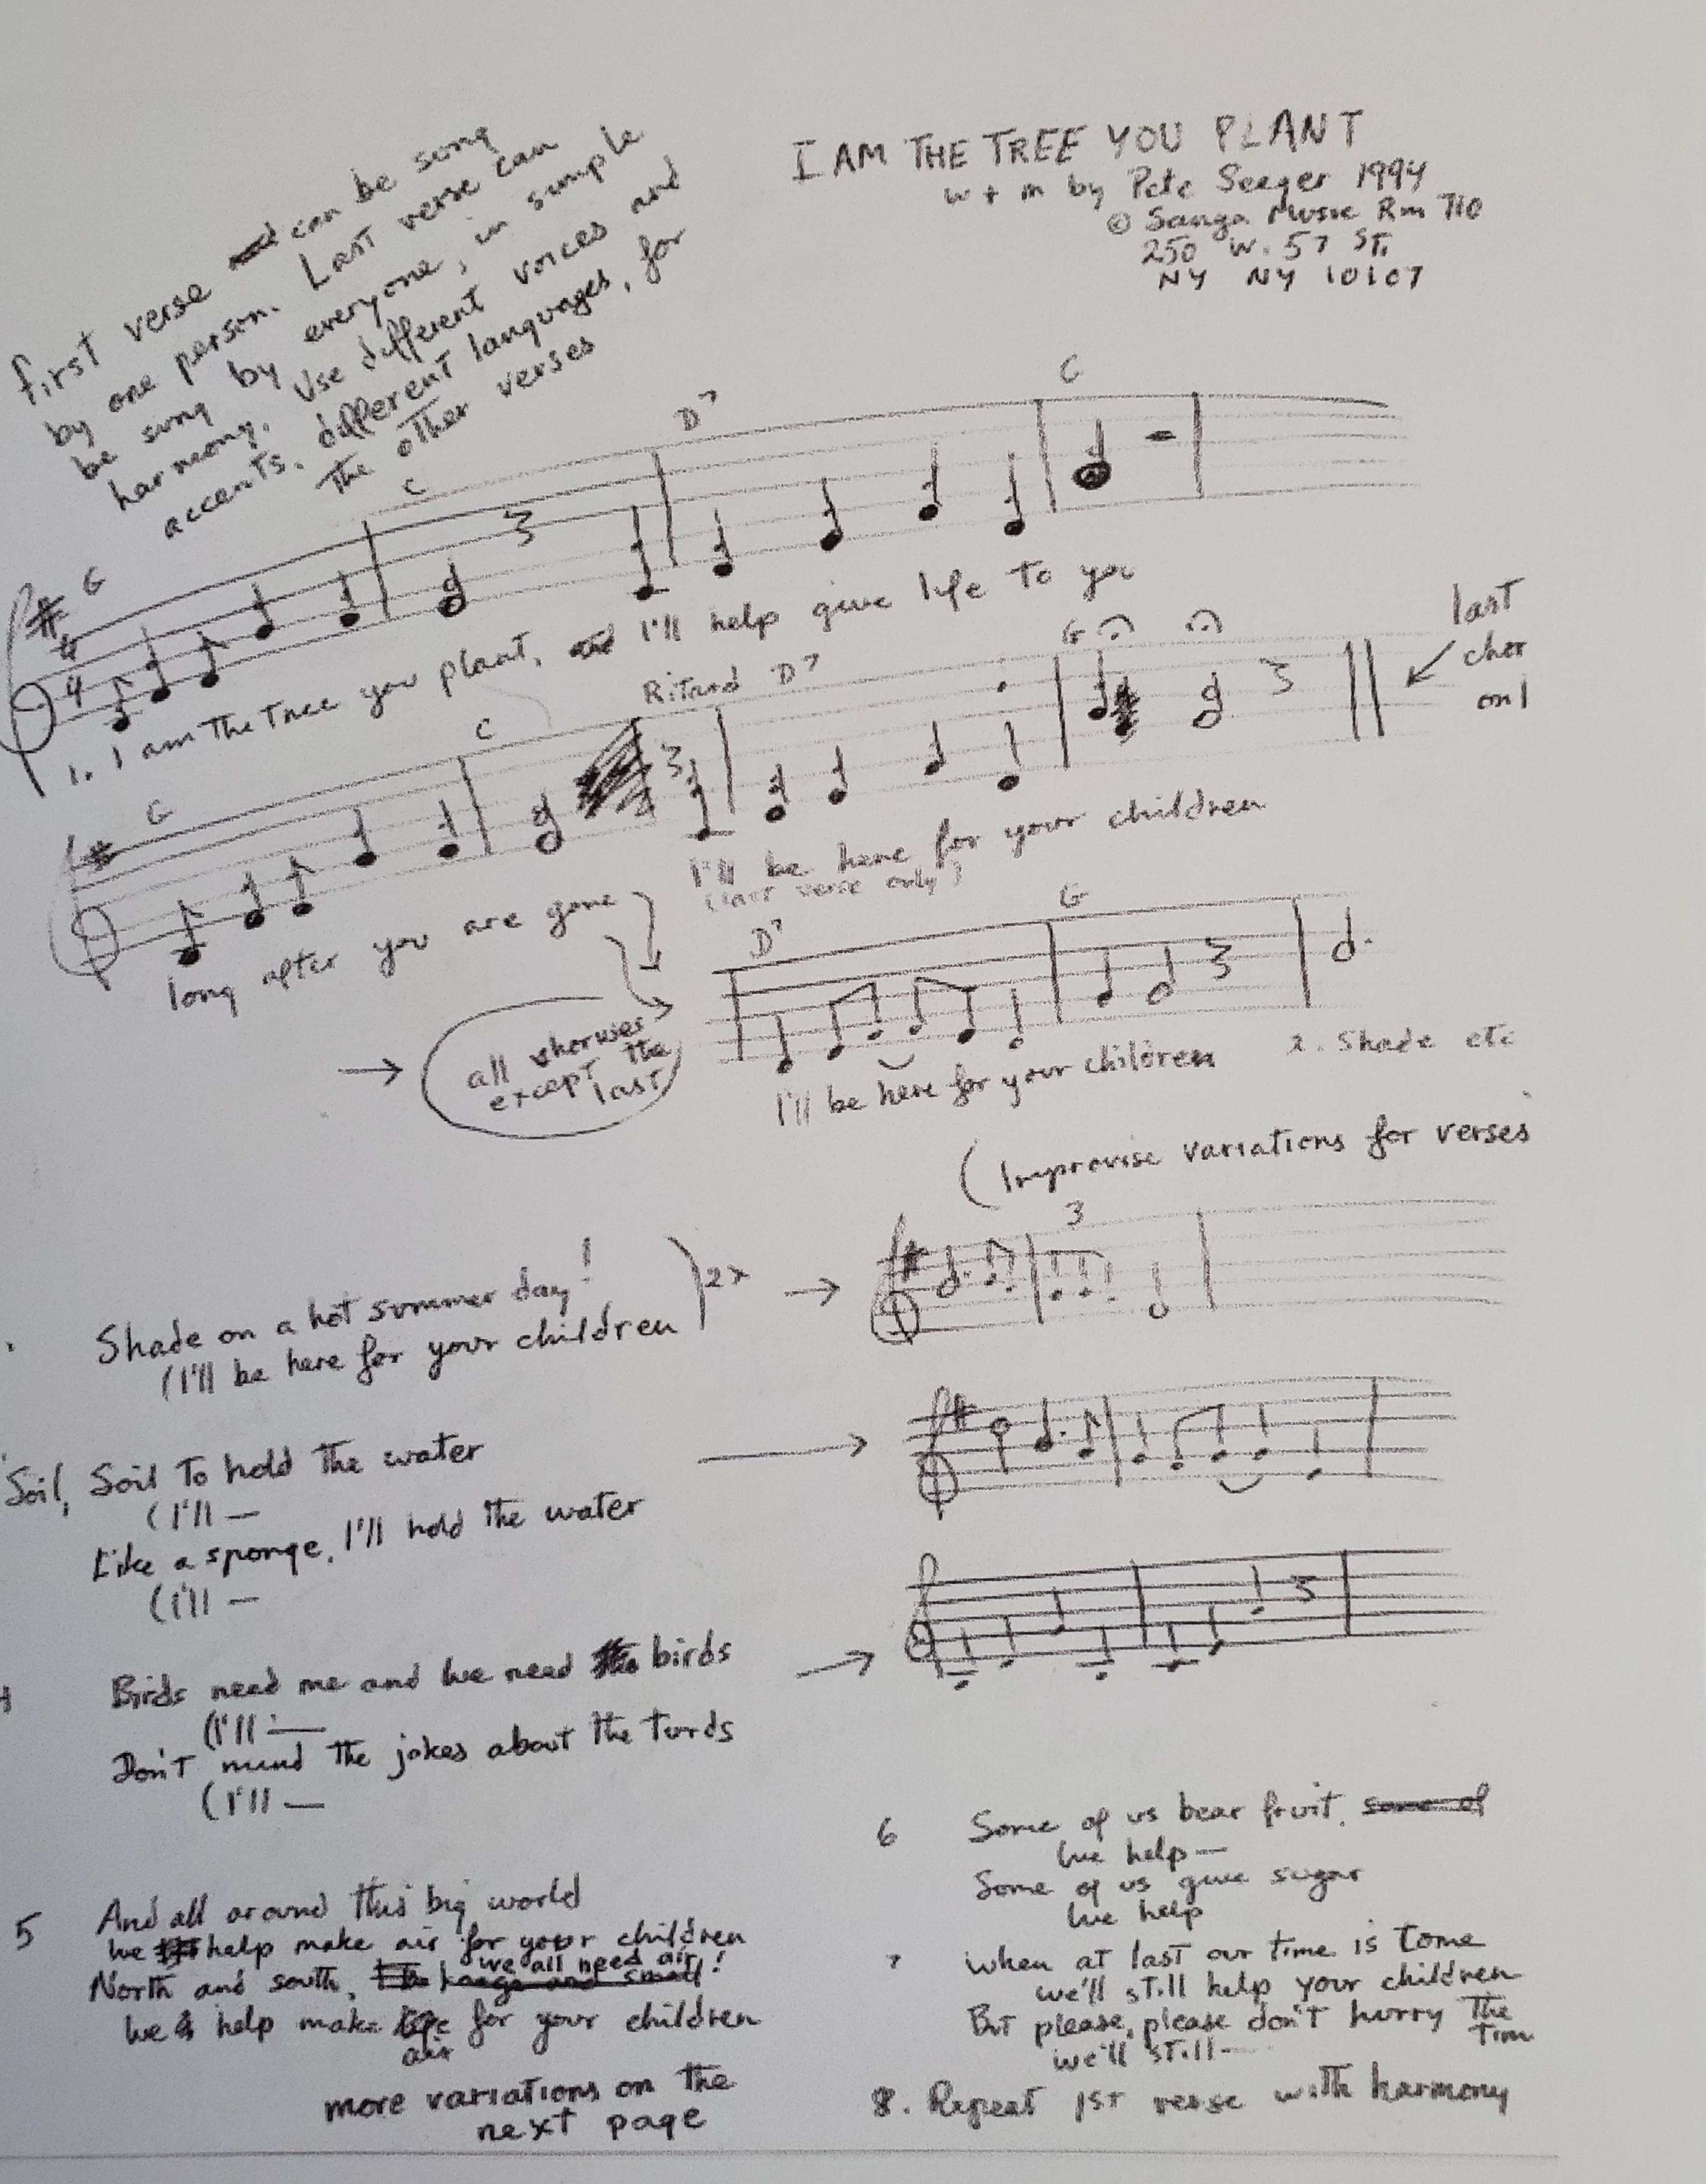 I AM THE TREE YOU PLANT
w + m by Pete Seeger 1994
© Sanga Music Rm 710
250 W. 57 ST.
NY NY 10107
first verse can be sung
by one person. Last verse can
be sung by everyone, in simple
harmony. Use different voices and
accents, different languages, for
the other verses
G C D7 C
4
4
1. I am the tree you plant, I'll help give life to you
G C Ritard D7 G
last
chor
onl
long after you are gone I'll be here for your children
(last verse only)
D7 G
all choruses
except the
last
I'll be here for your children 2. Shade etc
(Improvise variations for verses
3
Shade on a hot summer day!
(I'll be here for your children
2x
Soil, Soil to hold the water
(I'll —
Like a sponge, I'll hold the water
(I'll —
Birds need me and we need birds
(I'll —
Don't mind the jokes about the turds
(I'll —
5 And all around this big world
we help make air for your children
North and south, we all need air!
we help make air for your children
more variations on the
next page
6 Some of us bear fruit, some of
we help —
Some of us give sugar
we help
7 when at last our time is come
we'll still help your children
But please, please don't hurry the
time
we'll still —
8. Repeat 1st verse with harmony